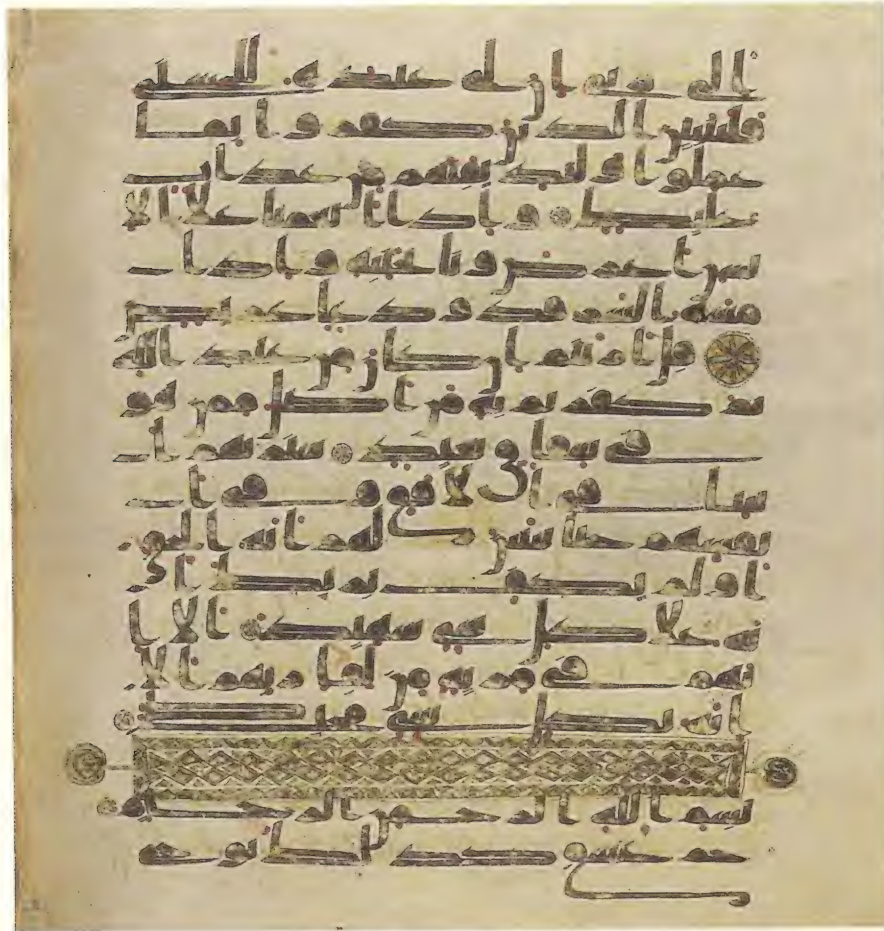 الى ربى ان لى عنده للحسنى
فلننبين الذين كفروا بما
عملوا ولنذيقنهم من عذاب
غليظ واذا انعمنا على الا
نسن اعرض ونا بجنبه واذا
مسه الشر فذو دعا عريض
قل اريتم ان كان من عند الله
ثم كفرتم به من اضل ممن هو
فى شقاق بعيد سنريهم ا
يتنا فى الافاق وفى ا
نفسهم حتى يتبين لهم انه الحق
اولم يكف بربك ا
نه على كل شى شهيد الا ا
نهم فى مرية من لقا ربهم الا
انه بكل شى محيط
بسم الله الرحمن الرحيم
حم عسق كذلك يوحى